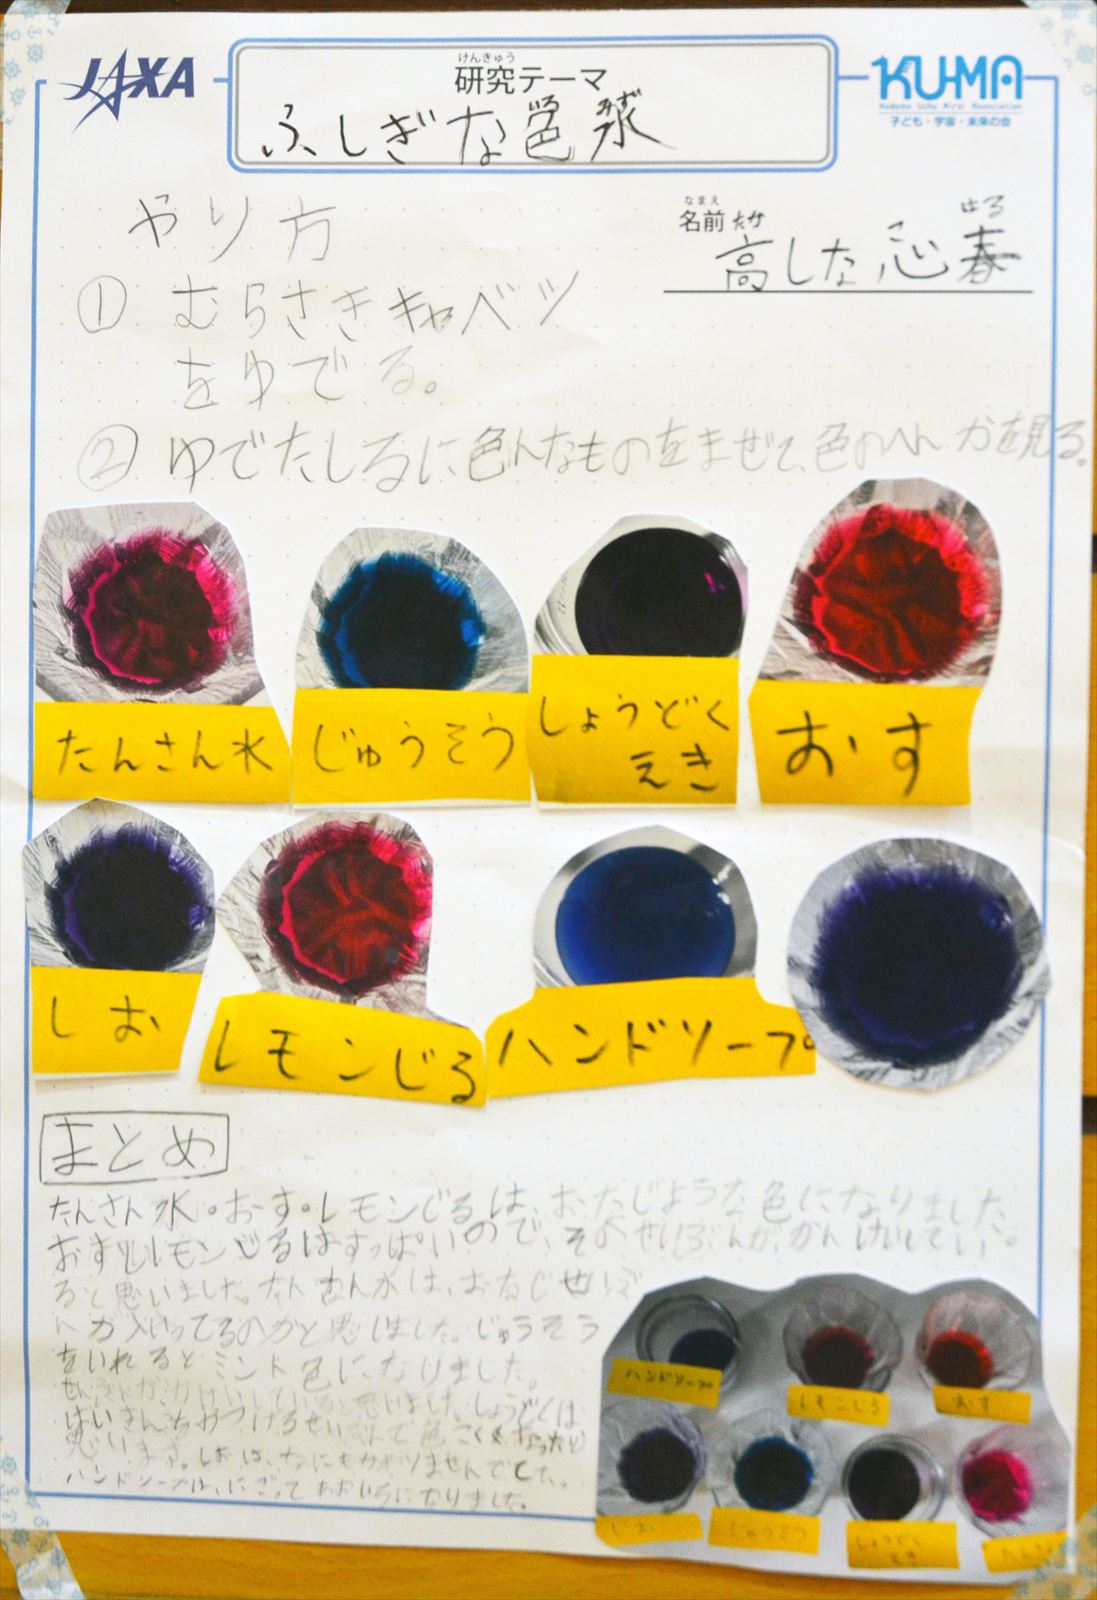 JAXA
けんきゅう
研究テーマ
ふしぎな色水
KUMA
Kodomo Uchu Mirai Association
子ども・宇宙・未来の会
なまえ
名前
たか
はる
高しな心春
やり方
① むらさきキャベツ
をゆでる。
② ゆでたしるに色んなものをまぜて、色のへんかを見る。
たんさん水
じゅうそう
しょうどく
えき
おす
しお
レモンじる
ハンドソープ
まとめ
たんさん水。おす。レモンじるは、おなじような色になりました。
おすとレモンじるはすっぱいので、そのせいぶんが、かんけいしてい
ると思いました。たんさん水は、おなじせいぶ
んが入ってるのかと思いました。じゅうそう
をいれるとミント色になりました。
思います。しおは、なにもかわりませんでした。
ハンドソープは、にごってあおいろになりました。
ハンドソープ
レモンじる
おす
しお
じゅうそう
しょうどく
えき
たんさ